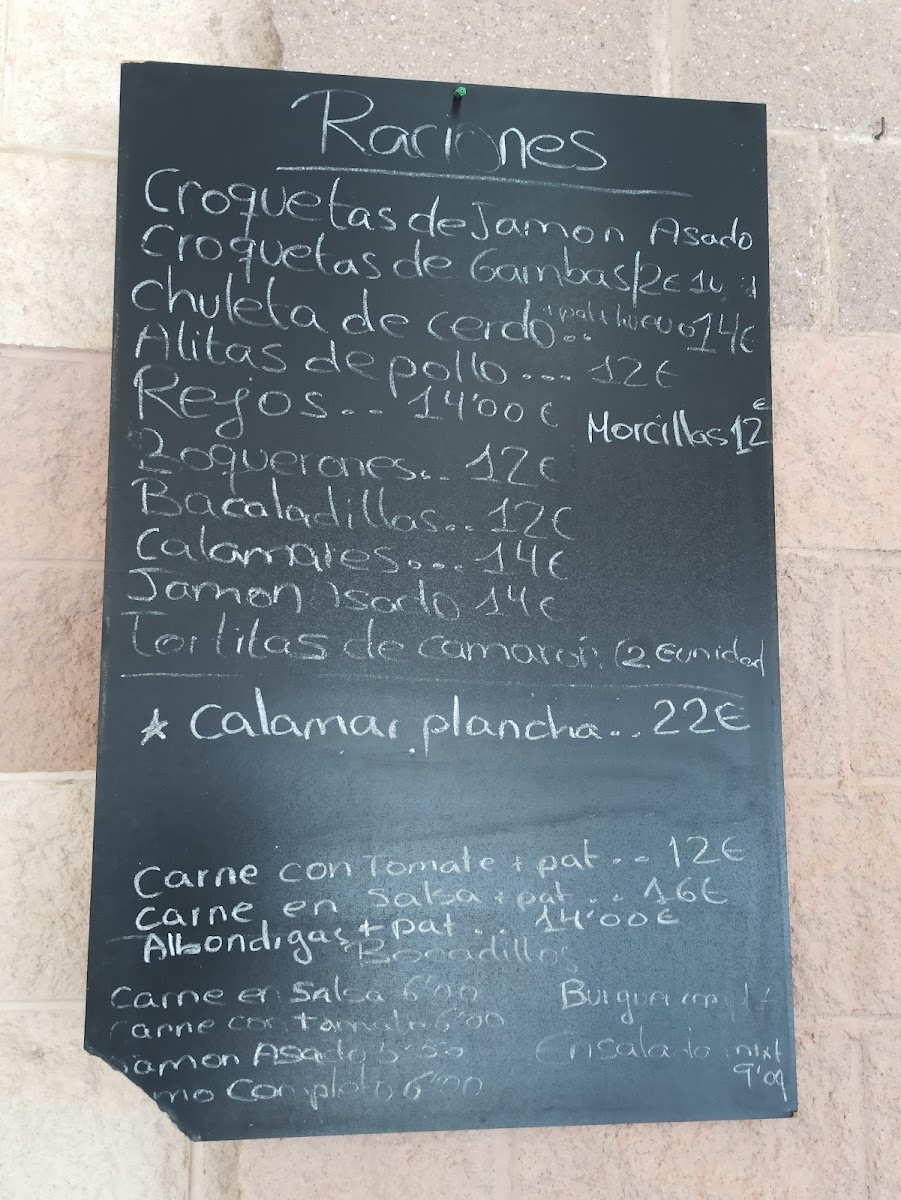 Raciones
Croquetas de Jamon Asado
Croquetas de Gambas 12€
Chuleta de cerdo.. + pat + huevo 14€
Alitas de pollo ... 12€
Rejos.. 14'00€
Morcillas 12€
Boquerones.. 12€
Bacaladillas.. 12€
Calamares... 14€
Jamon Asado 14€
Tortitas de camarón (2€ unidad
* Calamar plancha.. 22€
Carne con Tomate + pat.. 12€
Carne en Salsa + pat.. 16€
Albondigas + pat... 14'00€
Bocadillos
Carne en Salsa 6'00
Carne con tomate 6'00
Jamon Asado
Completo 6'00
Ensalada mixt
9'00